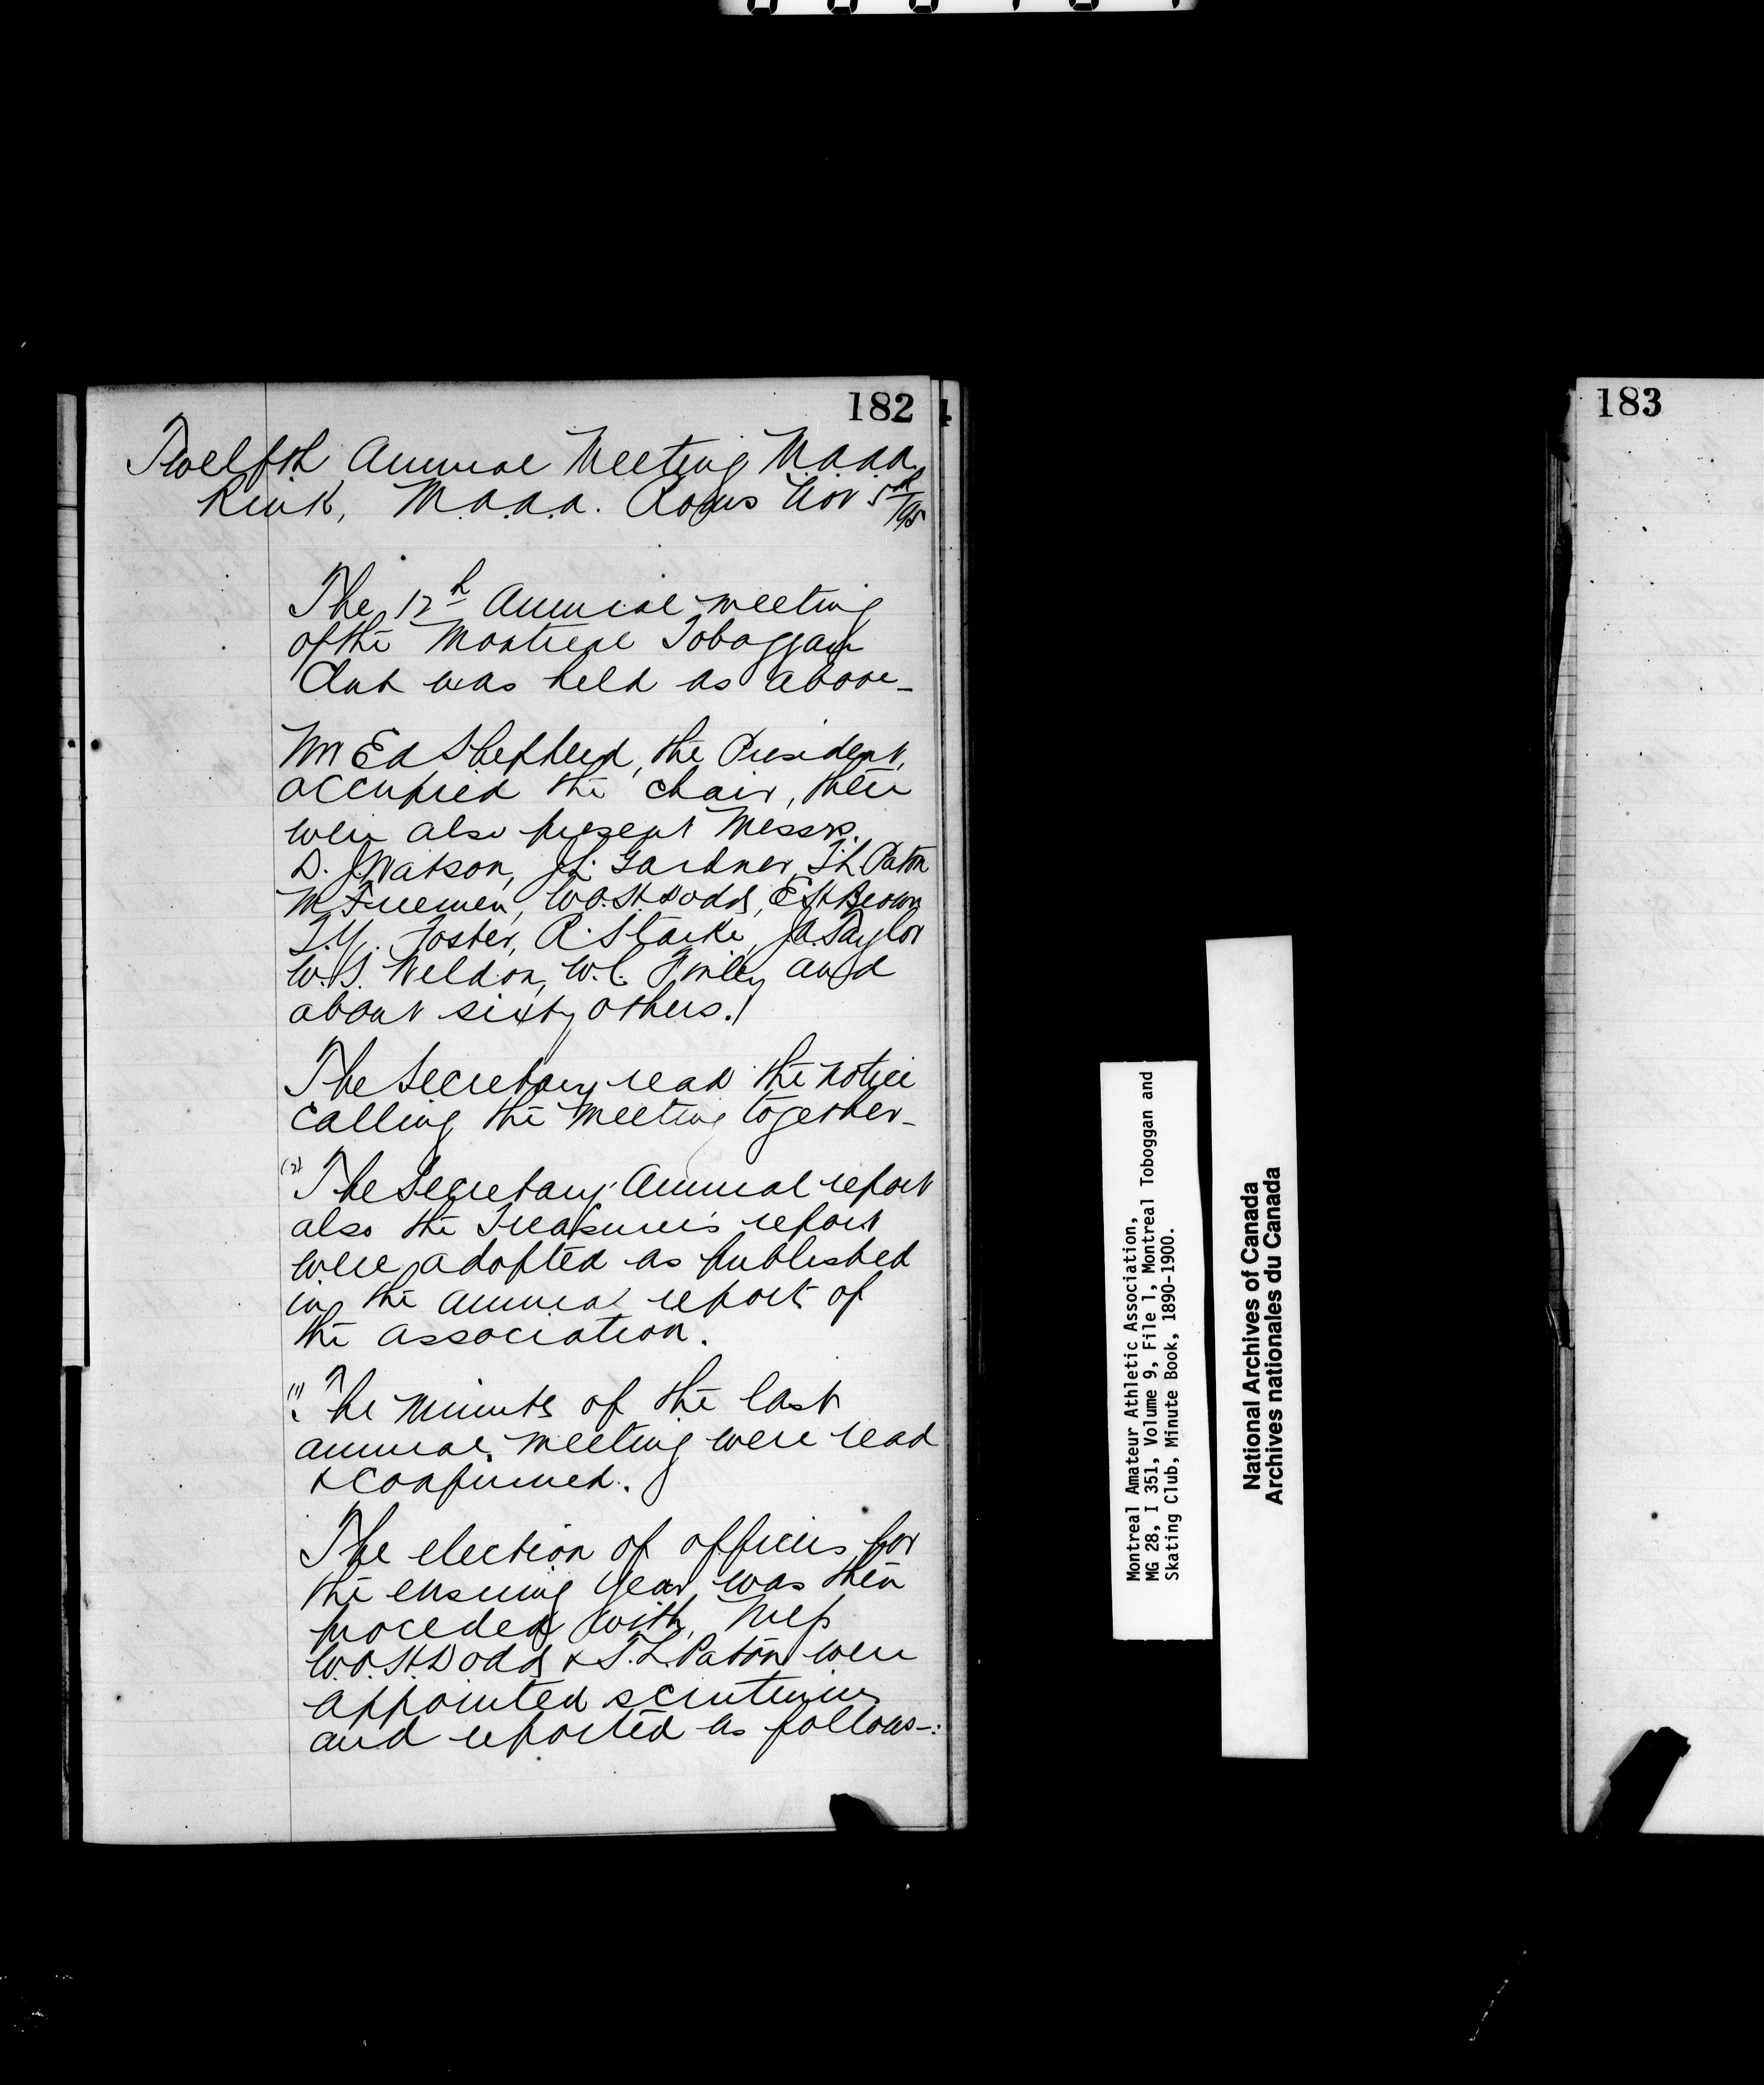 182
Twelfth Annual Meeting M.A.A.A.
Rink, M.A.A.A. Rooms Nov 5th/95
The 12th Annual meeting
of the Montreal Toboggan
Club was held as above_
Mr Ed Shepherd, the President,
occupied the chair, there
were also present Messrs.
D. J. Watson, J. L. Gardner, T. L. Paton
M Freeman, W.O.H. Dodds, E H Brown
T. Y. Foster, R. Starke, J A. Taylor
W. S. Weldon, W. C. Finley and
about sixty others.
The Secretary read the notice
calling the meeting together_
(2) The Secretary Annual report
also the Treasurer's report
were adopted as published
in the annual report of
the association.
(1) The minutes of the last
annual meeting were read
& confirmed.
The election of officers for
the ensuing year was then
proceded with, Mess
W.O.H. Dodds & T. L. Paton were
appointed scrutinies
and reported as follows-:
Montreal Amateur Athletic Association,
MG 28, I 351, Volume 9, File 1, Montreal Toboggan and
Skating Club, Minute Book, 1890-1900.
National Archives of Canada
Archives nationales du Canada
183